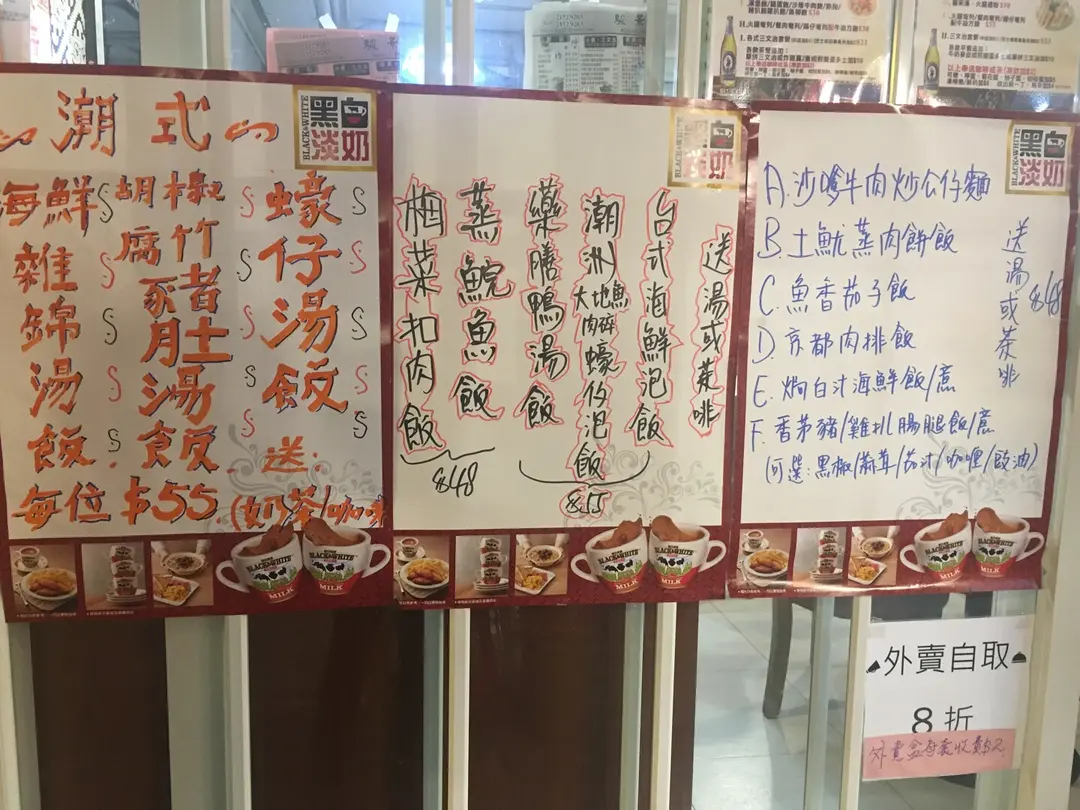 潮式
海鮮雜錦湯飯.
胡椒腐竹豬肚湯飯.
蠔仔湯飯
送.
每位 $55.(奶茶/咖啡
黑白淡奶
BLACK&WHITE
送湯或茶啡
台式海鮮泡飯
潮洲大地魚肉碎蠔仔泡飯
藥膳鴨湯飯
蒸鯇魚飯
梅菜扣肉飯
$55
$48
黑白淡奶
A.沙嗲牛肉炒公仔麵
B.土魷蒸肉餅飯
C.魚香茄子飯
D.京都肉排飯
E.焗白汁海鮮飯/意
F.香茅豬/雞扒腸腿飯/意
(可選:黑椒/蒜茸/茄汁/咖喱/豉油)
送湯或茶啡
$48
黑白淡奶
BLACK&WHITE
BLACK&WHITE
MILK
MILK
BLACK&WHITE
MILK
MILK
BLACK&WHITE
MILK
MILK
外賣自取
8折